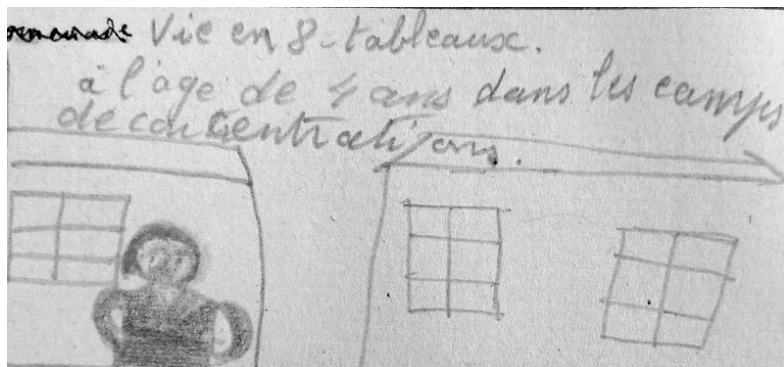 Vie en 8-tableaux.
à l'age de 4 ans dans les camps
de concentrations.